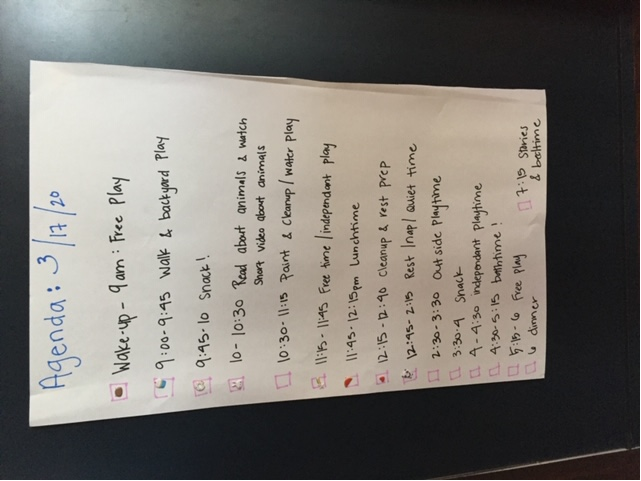 Agenda: 3/17/20
Wake-up - 9am: Free Play
9:00-9:45 Walk & backyard Play
9:45-10 Snack!
10-10:30 Read about animals & watch
Short video about animals
10:30-11:15 Paint & Cleanup/Water Play
11:15-11:45 Free time/independent play
11:45-12:15pm Lunchtime
12:15-12:40 Cleanup & rest Prep
12:45-2:15 Rest/nap/Quiet time
2:30-3:30 Outside Playtime
3:30-4 Snack
4-4:30 independent playtime
4:30-5:15 bathtime!
5:15-6 Free play
6 dinner
7:15 Stories
& bedtime